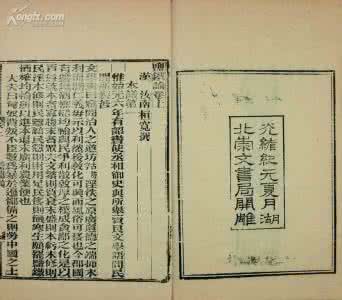 Kongfz.com
光緒紀元夏月湖
北崇文書局開雕
鹽鐵論卷上
漢 汝南桓寬撰
本議第一
惟始元六年有詔書使丞相御史與所舉賢良文學語問民
文學對曰竊聞治人之道防淫佚之原廣道德之端抑末
利而開仁義毋示以利然後教化可興而風俗可移也今郡國
有鹽鐵酒榷均輸與民爭利散敦厚之樸成貪鄙之化是以
百姓就本者寡趨末者眾夫文繁則質衰末盛則本虧末修則
民淫本修則民愨民愨則財用足民侈則飢寒生願罷鹽鐵
酒榷均輸所以進本退末廣利農業便也
大夫曰匈奴背叛不臣數為寇暴於邊鄙備之則勞中國之士